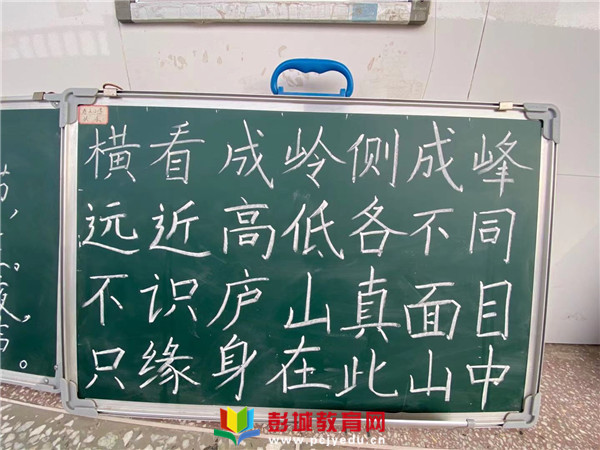 横看成岭侧成峰
远近高低各不同
不识庐山真面目
只缘身在此山中
彭城教育网
www.pcjyedu.cn